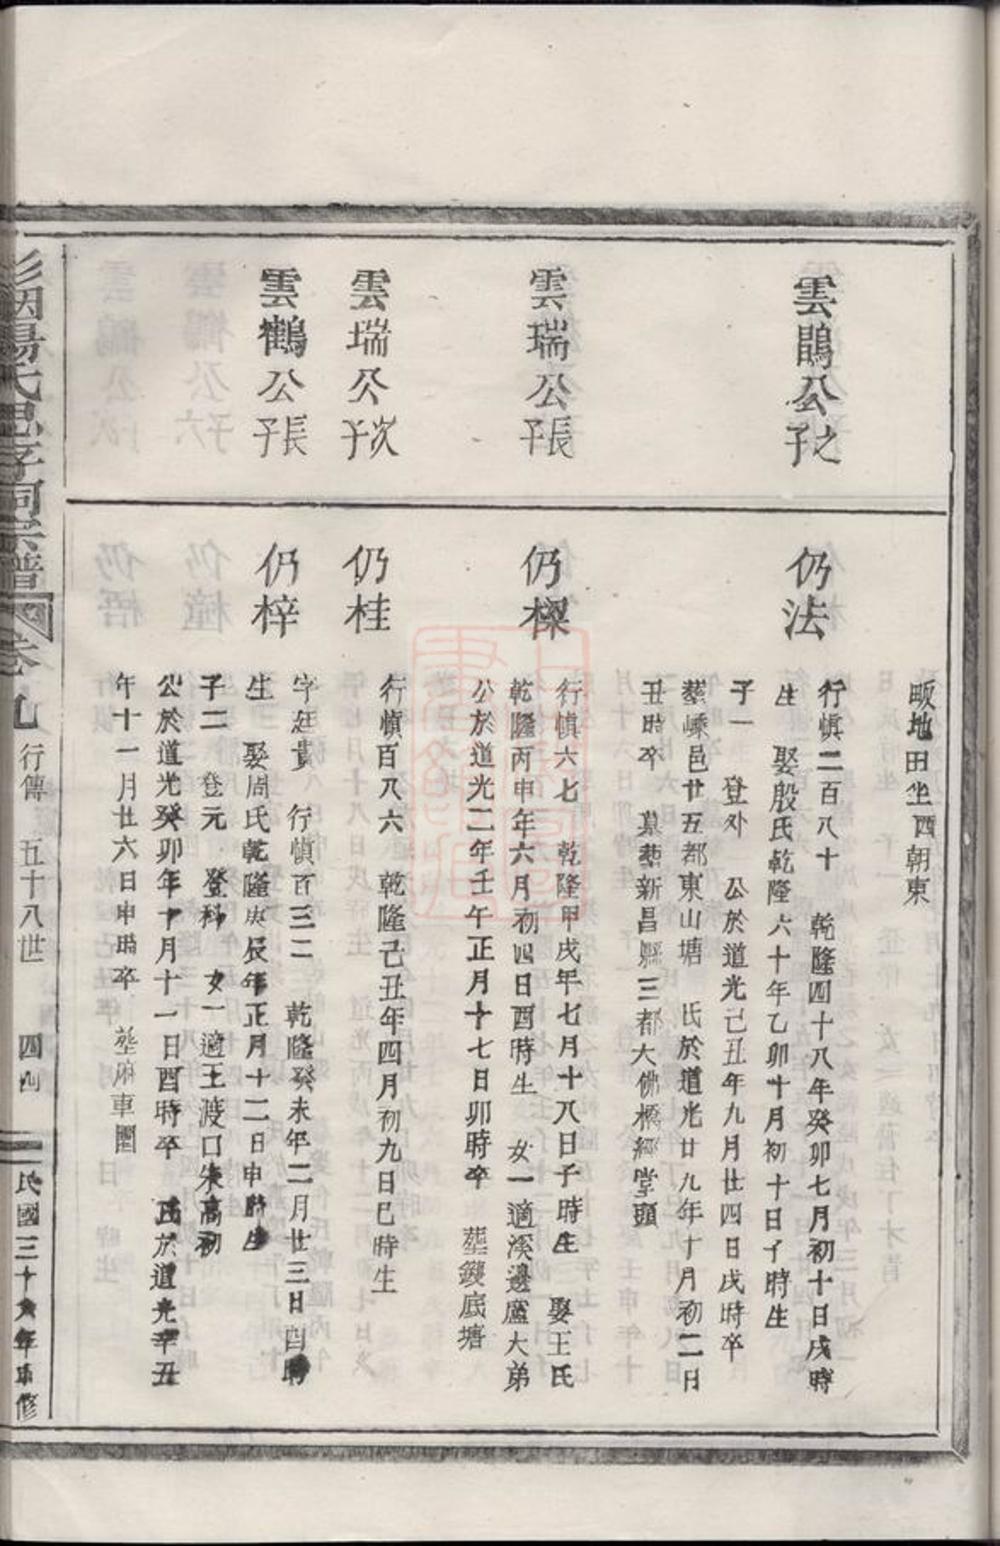 畈地田坐酉朝東
雲鵑公之子
仍法
行愼二百八十 乾隆四十八年癸卯七月初十日戌時
生 娶殷氏乾隆六十年乙卯十月初十日子時生
子一 登外 公於道光己丑年九月廿四日戌時卒
塟嵊邑廿五都東山塘 氏於道光廿九年十月初二日
丑時卒 墓塟新昌縣三都大佛橋經堂頭
雲瑞公長子
仍樑
行愼六七 乾隆甲戌年七月十八日子時生 娶王氏
乾隆丙申年六月初四日酉時生 女一適溪邊盧大弟
公於道光二年壬午正月十七日卯時卒 塟鑊底塘
雲瑞公次子
仍桂
行愼百八六 乾隆己丑年四月初九日巳時生
雲鶴公長子
仍梓
字廷貴 行愼百三二 乾隆癸未年二月廿三日酉時
生 娶周氏乾隆庚辰年正月十二日申時生
子二 登元 登科 女一適王渡口朱高初
公於道光癸卯年十月十一日酉時卒 氏於道光辛丑
年十一月廿六日申時卒 塟麻車園
楊氏思孝祠宗譜 卷九 行傳 五十八世 四四 民國三十六年重修